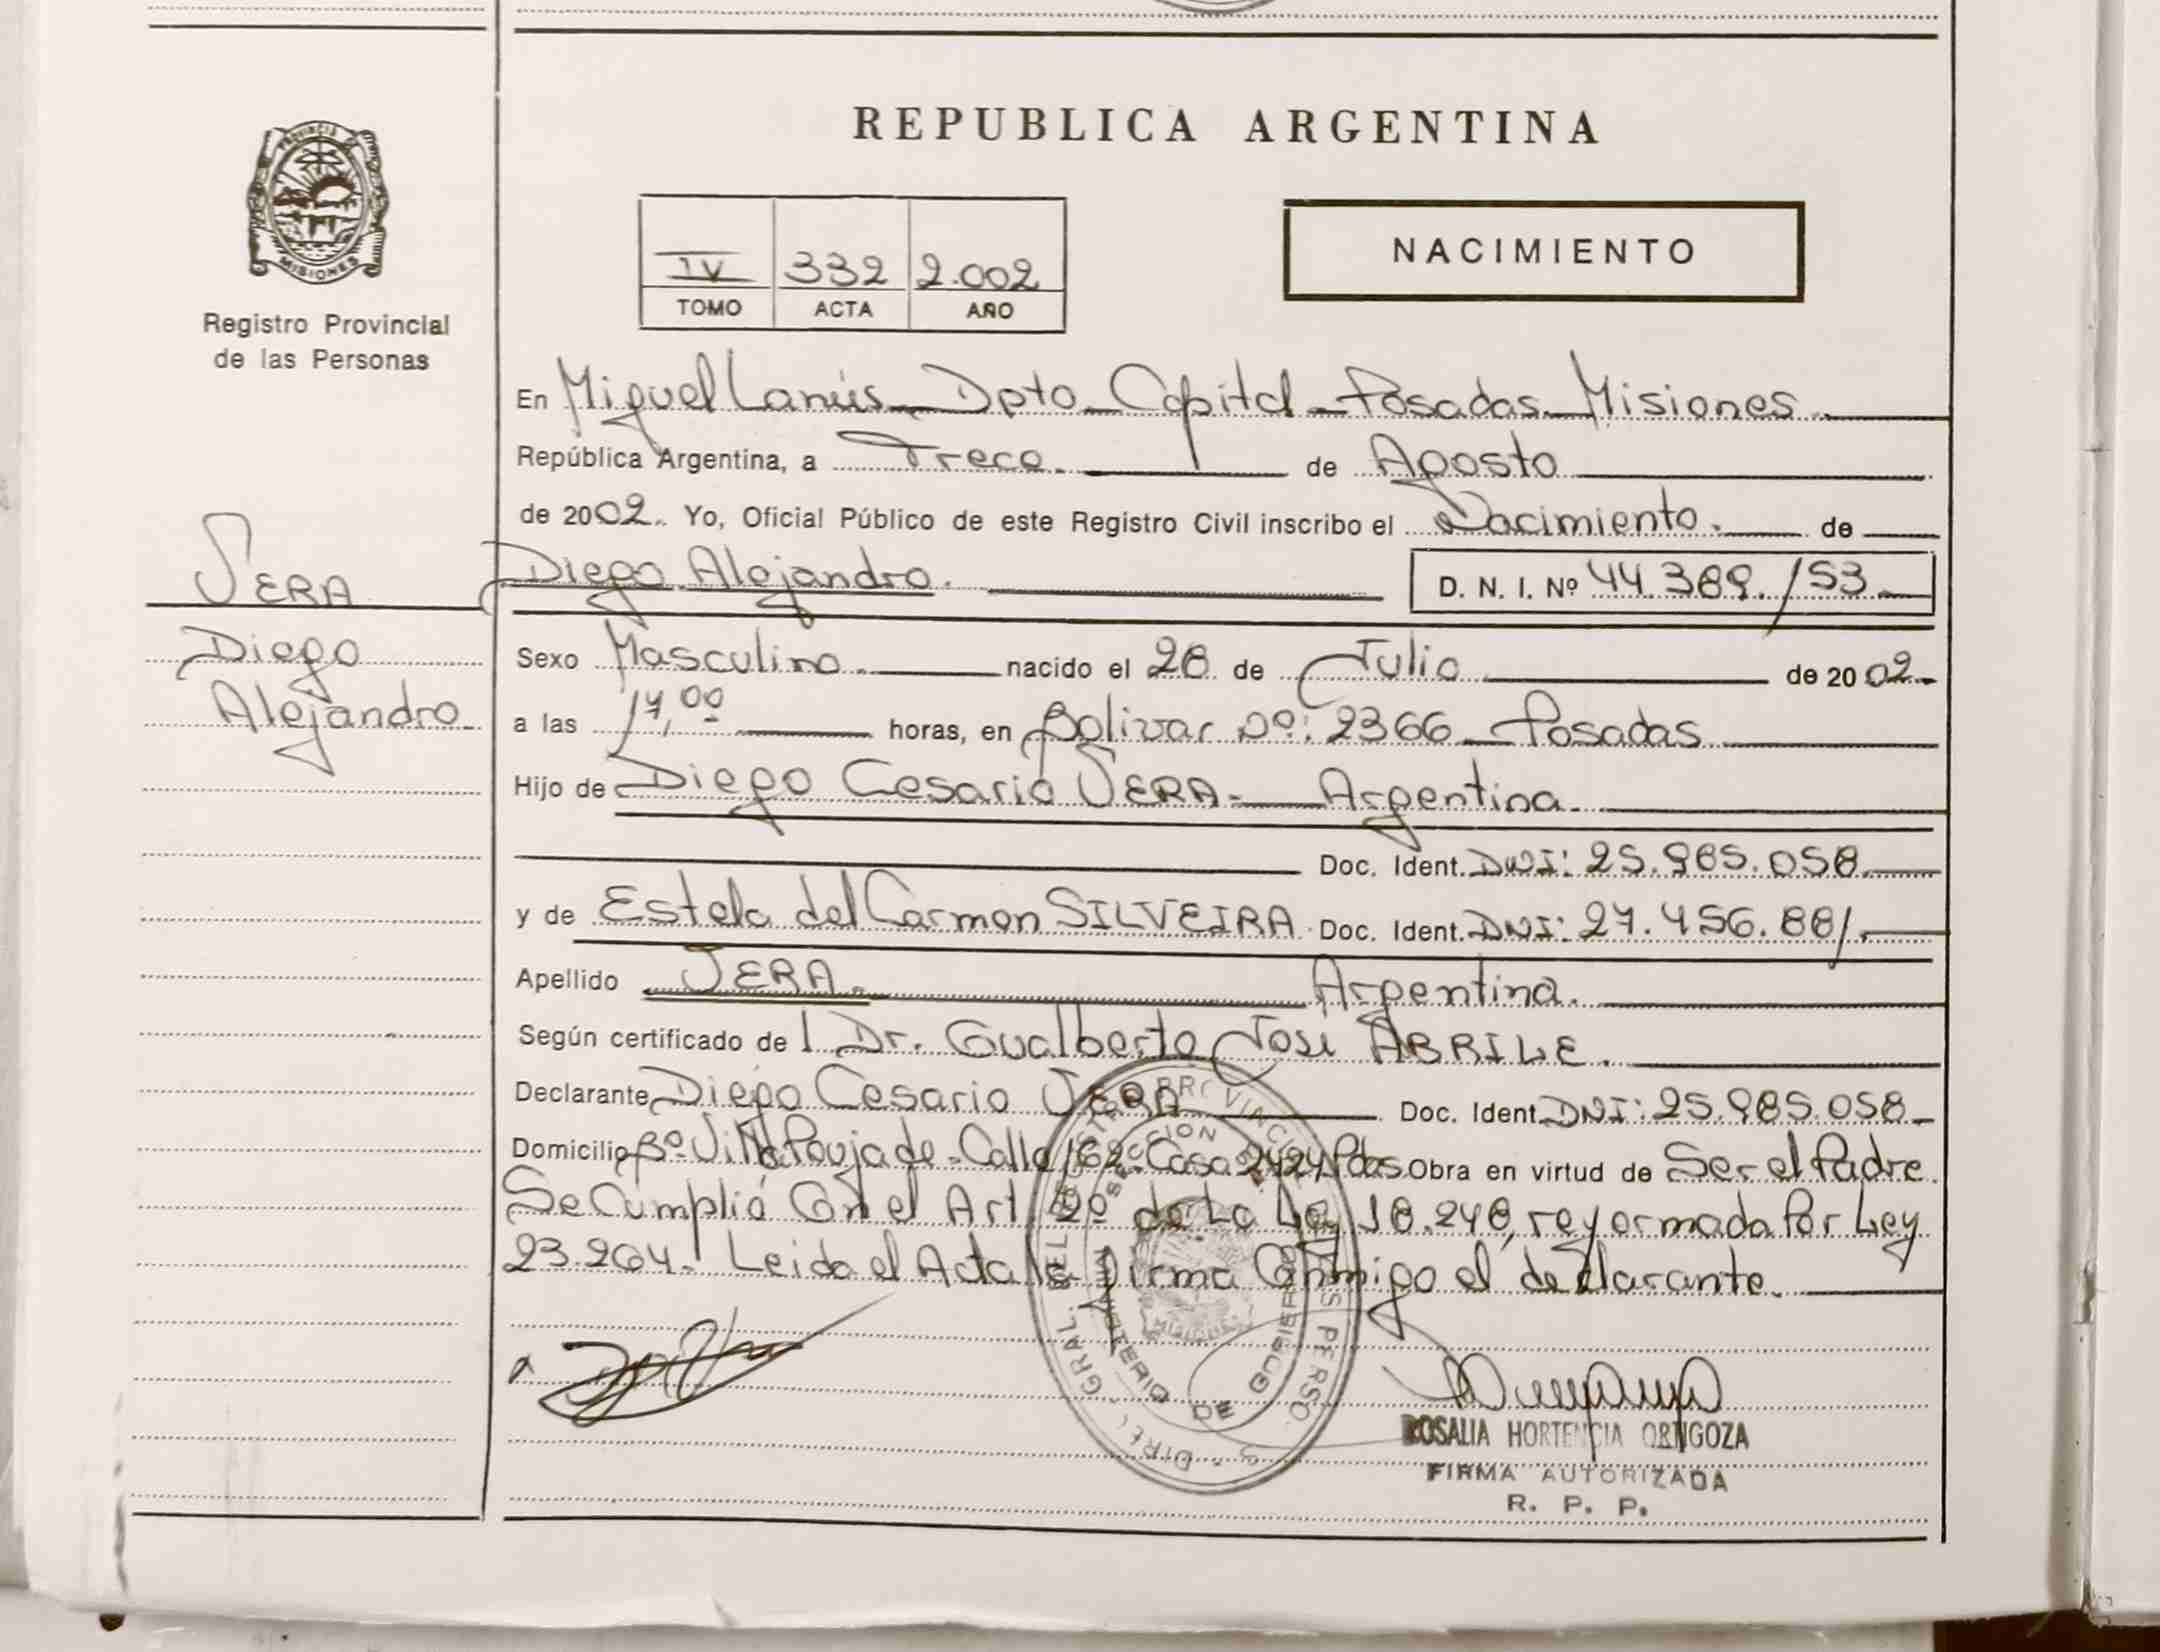 REPUBLICA ARGENTINA
PROVINCIA DE
MISIONES
Registro Provincial
de las Personas
IV 332 2.002
TOMO ACTA AÑO
NACIMIENTO
En Miguel Lanús - Dpto - Capital - Posadas - Misiones.
República Argentina, a Trece. de Agosto
de 2002. Yo, Oficial Público de este Registro Civil inscribo el Nacimiento. de
Diego Alejandro. D. N. I. Nº 44.389.153
VERA
Diego
Alejandro
Sexo Masculino. nacido el 28 de Julio de 2002.
a las 17,00 horas, en Bolivar Nº: 2366 - Posadas
Hijo de Diego Cesario VERA - Argentina.
Doc. Ident. DNI: 25.985.058.
y de Estela del Carmen SILVEIRA. Doc. Ident. DNI: 27.456.881.
Apellido VERA. Argentina.
Según certificado de l Dr. Gualberto José ABRILE.
Declarante Diego Cesario VERA Doc. Ident. DNI: 25.985.058
Domicilio Bº Villa Poujade - Calle 162 - Casa 2424 Pdas. Obra en virtud de Ser el Padre.
Se Cumplió Con el Art. 2º de La Ley 18.248, reformada Por Ley
23.264. Leida el Acta la Firma Conmigo el declarante.
ROSALIA HORTENCIA ORTIGOZA
FIRMA AUTORIZADA
R. P. P.